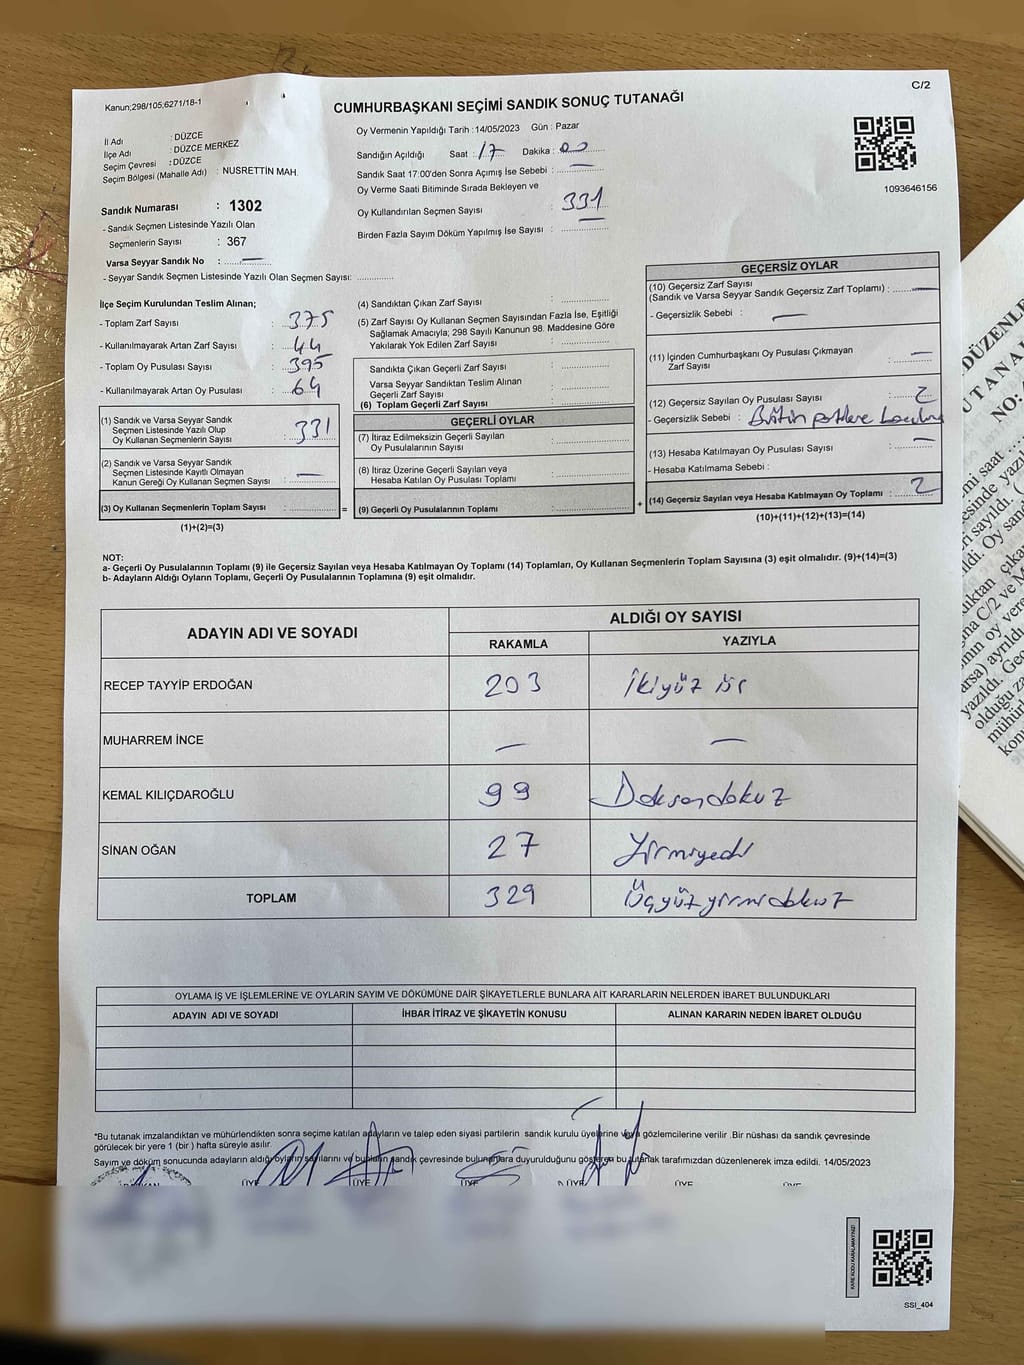 Kanun;298/105,6271/18-1
C/2
CUMHURBAŞKANI SEÇİMİ SANDIK SONUÇ TUTANAĞI
İl Adı : DÜZCE
İlçe Adı : DÜZCE MERKEZ
Seçim Çevresi : DÜZCE
Seçim Bölgesi (Mahalle Adı) : NUSRETTİN MAH.
Sandık Numarası : 1302
- Sandık Seçmen Listesinde Yazılı Olan
Seçmenlerin Sayısı : 367
Varsa Seyyar Sandık No : —
- Seyyar Sandık Seçmen Listesinde Yazılı Olan Seçmen Sayısı: ..............
Oy Vermenin Yapıldığı Tarih :14/05/2023 Gün : Pazar
Sandığın Açıldığı Saat : 17 Dakika : 00
Sandık Saat 17:00'den Sonra Açımış İse Sebebi : —
Oy Verme Saati Bitiminde Sırada Bekleyen ve
Oy Kullandırılan Seçmen Sayısı : 331
Birden Fazla Sayım Döküm Yapılmış İse Sayısı : —
1093646156
İlçe Seçim Kurulundan Teslim Alınan;
- Toplam Zarf Sayısı : 375
- Kullanılmayarak Artan Zarf Sayısı : 44
- Toplam Oy Pusulası Sayısı : 395
- Kullanılmayarak Artan Oy Pusulası : 64
(1) Sandık ve Varsa Seyyar Sandık
Seçmen Listesinde Yazılı Olup
Oy Kullanan Seçmenlerin Sayısı : 331
(2) Sandık ve Varsa Seyyar Sandık
Seçmen Listesinde Kayıtlı Olmayan
Kanun Gereği Oy Kullanan Seçmen Sayısı : —
(3) Oy Kullanan Seçmenlerin Toplam Sayısı : .............. =
(1)+(2)=(3)
(4) Sandıktan Çıkan Zarf Sayısı : ..............
(5) Zarf Sayısı Oy Kullanan Seçmen Sayısından Fazla İse, Eşitliği
Sağlamak Amacıyla; 298 Sayılı Kanunun 98. Maddesine Göre
Yakılarak Yok Edilen Zarf Sayısı : ..............
Sandıkta Çıkan Geçerli Zarf Sayısı : ..............
Varsa Seyyar Sandıktan Teslim Alınan
Geçerli Zarf Sayısı : ..............
(6) Toplam Geçerli Zarf Sayısı : ..............
GEÇERLİ OYLAR
(7) İtiraz Edilmeksizin Geçerli Sayılan
Oy Pusulalarının Sayısı : ..............
(8) İtiraz Üzerine Geçerli Sayılan veya
Hesaba Katılan Oy Pusulası Toplamı : ..............
(9) Geçerli Oy Pusulalarının Toplamı : .............. +
GEÇERSİZ OYLAR
(10) Geçersiz Zarf Sayısı
(Sandık ve Varsa Seyyar Sandık Geçersiz Zarf Toplamı) : —
- Geçersizlik Sebebi : —
(11) İçinden Cumhurbaşkanı Oy Pusulası Çıkmayan
Zarf Sayısı : —
(12) Geçersiz Sayılan Oy Pusulası Sayısı : 2
- Geçersizlik Sebebi : Bütün
(13) Hesaba Katılmayan Oy Pusulası Sayısı : —
- Hesaba Katılmama Sebebi :
(14) Geçersiz Sayılan veya Hesaba Katılmayan Oy Toplamı : 2
(10)+(11)+(12)+(13)=(14)
NOT:
a- Geçerli Oy Pusulalarının Toplamı (9) ile Geçersiz Sayılan veya Hesaba Katılmayan Oy Toplamı (14) Toplamları, Oy Kullanan Seçmenlerin Toplam Sayısına (3) eşit olmalıdır. (9)+(14)=(3)
b- Adayların Aldığı Oyların Toplamı, Geçerli Oy Pusulalarının Toplamına (9) eşit olmalıdır.
ADAYIN ADI VE SOYADI ALDIĞI OY SAYISI
RAKAMLA YAZIYLA
RECEP TAYYİP ERDOĞAN 203 İkiyüz üç
MUHARREM İNCE — —
KEMAL KILIÇDAROĞLU 99 Doksandokuz
SİNAN OĞAN 27 Yirmiyedi
TOPLAM 329 Üçyüzyirmidokuz
OYLAMA İŞ VE İŞLEMLERİNE VE OYLARIN SAYIM VE DÖKÜMÜNE DAİR ŞİKAYETLERLE BUNLARA AİT KARARLARIN NELERDEN İBARET BULUNDUKLARI
ADAYIN ADI VE SOYADI İHBAR İTİRAZ VE ŞİKAYETİN KONUSU ALINAN KARARIN NEDEN İBARET OLDUĞU
*Bu tutanak imzalandıktan ve mühürlendikten sonra seçime katılan adayların ve talep eden siyasi partilerin sandık kurulu üyelerine veya gözlemcilerine verilir .Bir nüshası da sandık çevresinde
görülecek bir yere 1 (bir ) hafta süreyle asılır.
Sayım ve döküm sonucunda adayların aldığı oyların sayılarını ve bunların sandık çevresinde bulunanlara duyurulduğunu gösteren bu tutanak tarafımızdan düzenlenerek imza edildi. 14/05/2023
BAŞKAN ÜYE ÜYE ÜYE ÜYE ÜYE ÜYE
KARE KODU KARALAMAYINIZ!
SSI_404
DÜZENLE
UTANA
NO: